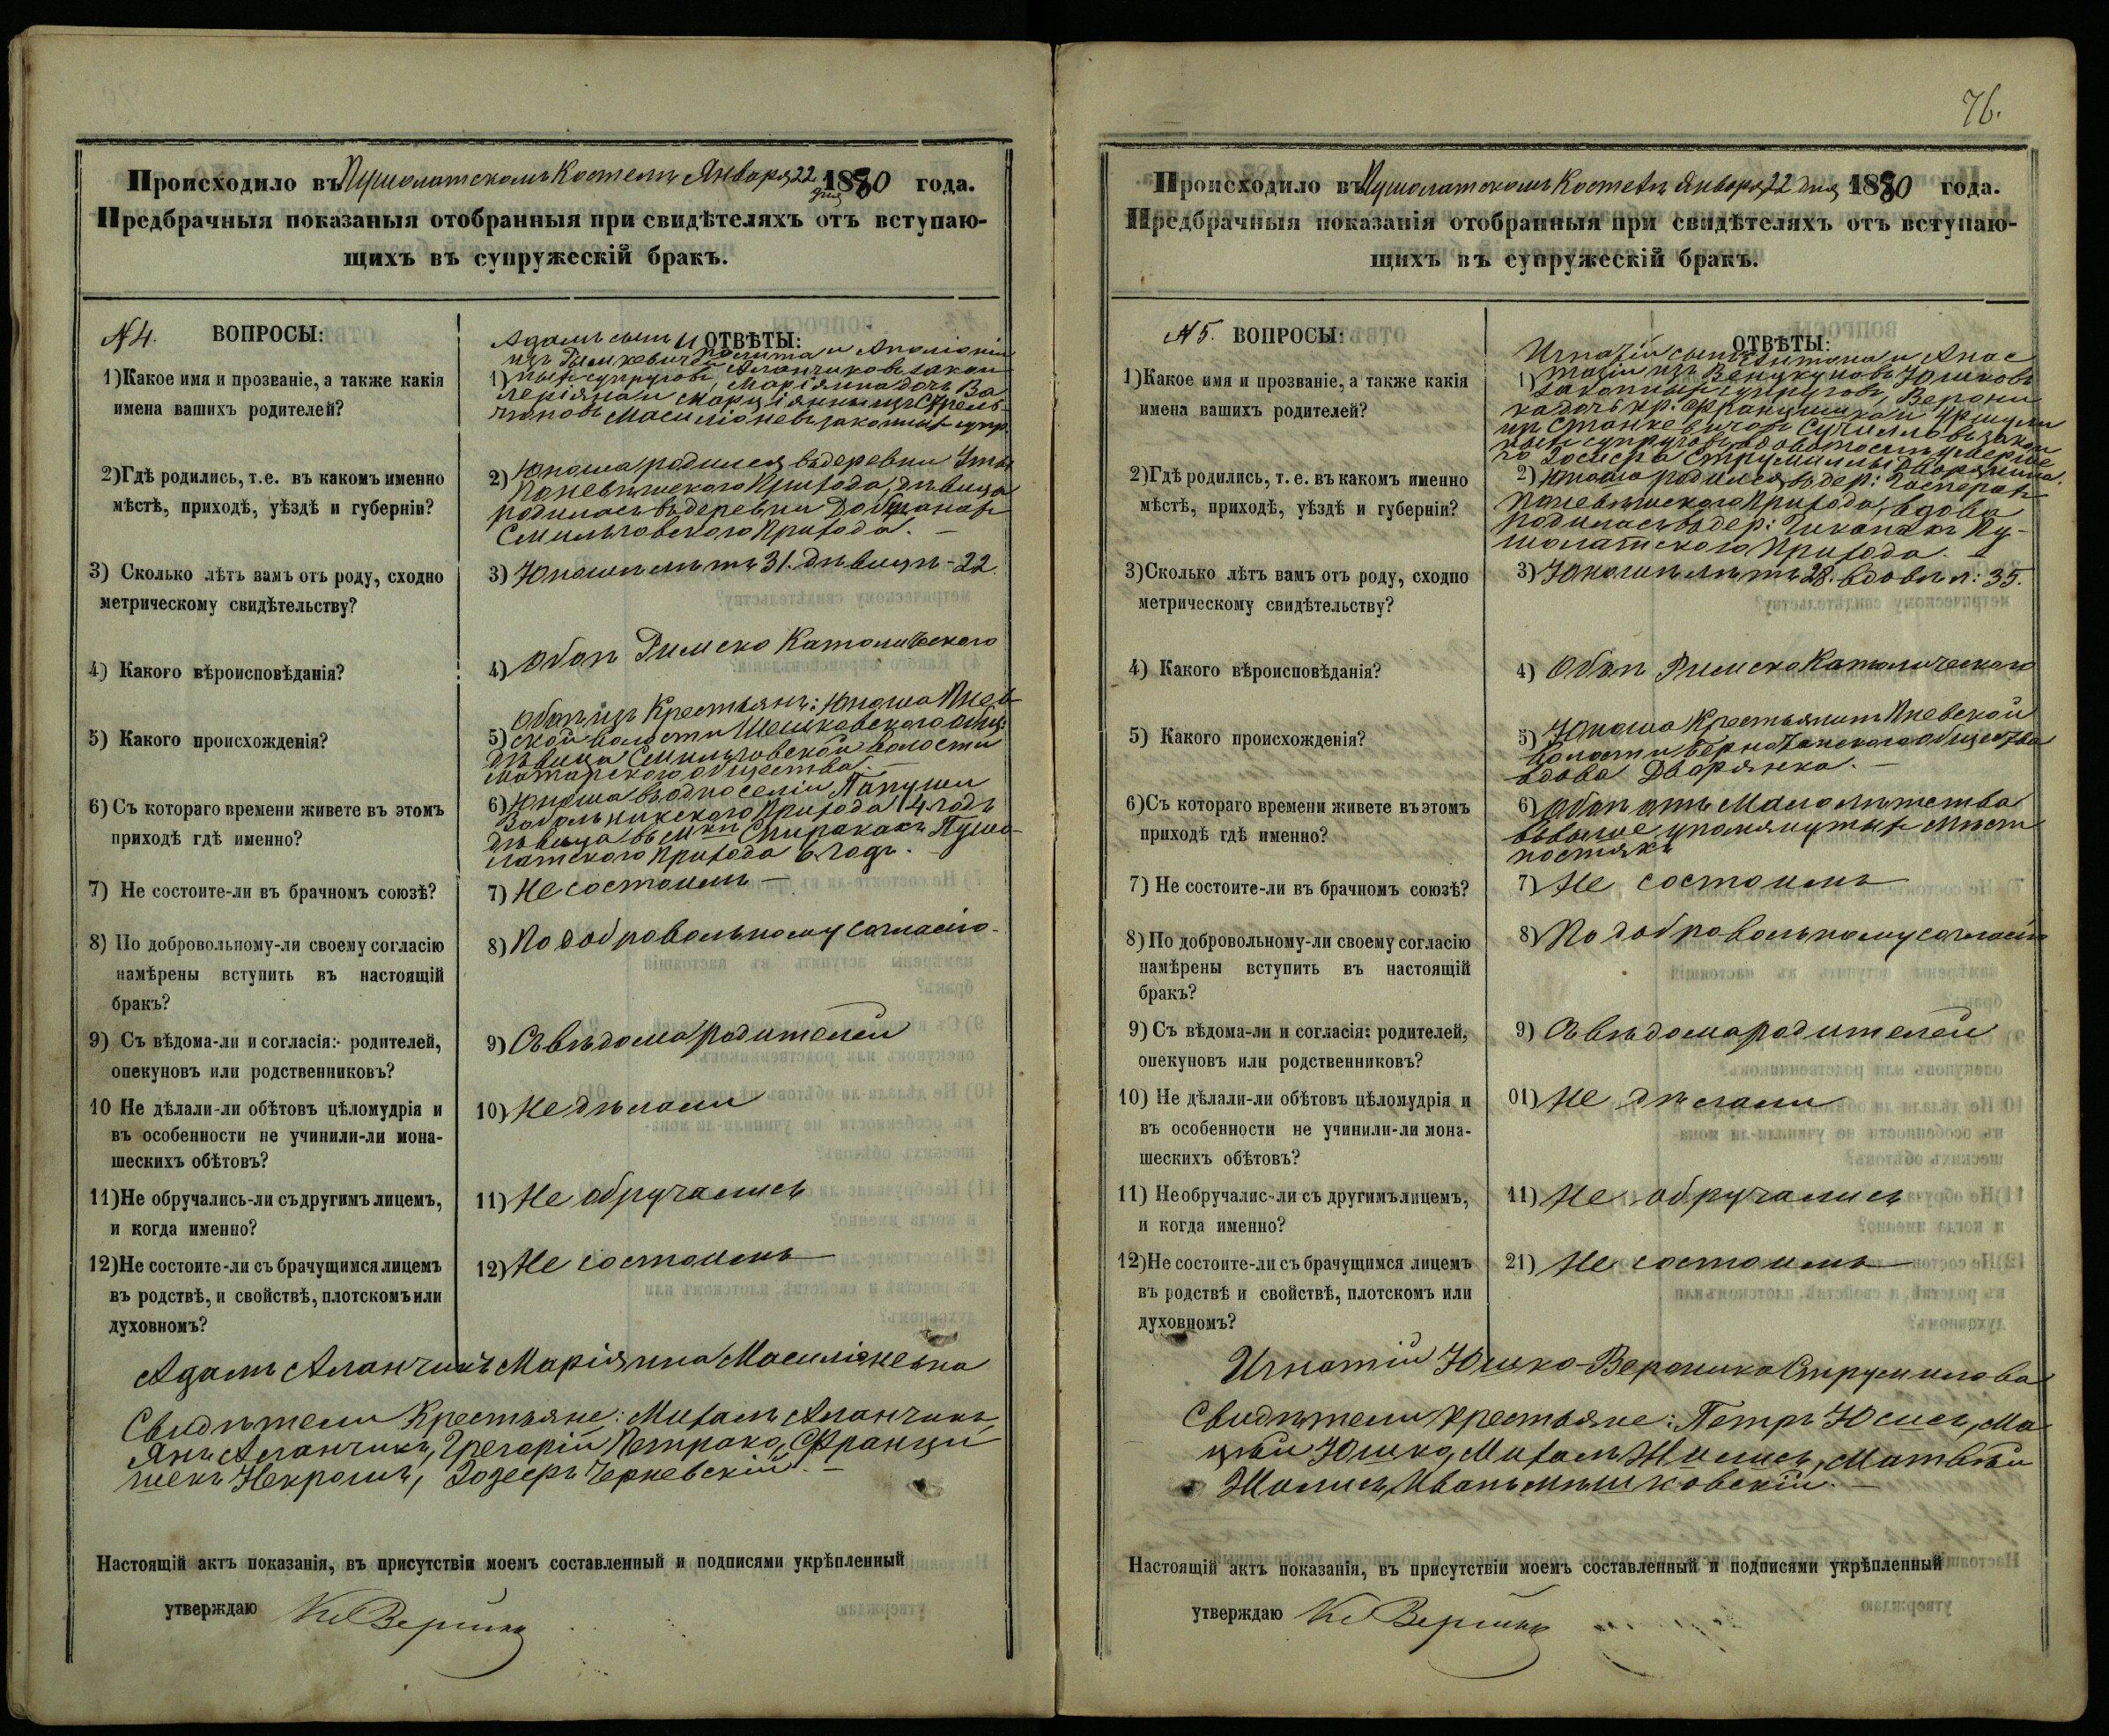 Происходило въ Пушолатскомъ Костелѣ Января 22 дня 1880 года.
Предбрачныя показаныя отобранныя при свидѣтеляхъ отъ вступаю-
щихъ въ супружескій бракъ.
№ 4. ВОПРОСЫ:
1) Какое имя и прозваніе, а также какія
имена вашихъ родителей?
2) Гдѣ родились, т.е. въ какомъ именно
мѣстѣ, приходѣ, уѣздѣ и губерніи?
3) Сколько лѣтъ вамъ отъ роду, сходно
метрическому свидѣтельству?
4) Какого вѣроисповѣданія?
5) Какого происхожденія?
6) Съ котораго времени живете въ этомъ
приходѣ гдѣ именно?
7) Не состоите-ли въ брачномъ союзѣ?
8) По добровольному-ли своему согласію
намѣрены вступить въ настоящій
бракъ?
9) Съ вѣдома-ли и согласія: родителей,
опекуновъ или родственниковъ?
10 Не дѣлали-ли обѣтовъ цѣломудрія и
въ особенности не учинили-ли мона-
шескихъ обѣтовъ?
11) Не обручались-ли съ другимъ лицемъ,
и когда именно?
12) Не состоите-ли съ брачущимся лицемъ
въ родствѣ, и свойствѣ, плотскомъ или
духовномъ?
ОТВѢТЫ:
Адамъ сынъ Иполита и Аполіоніи
изъ Рымкевичей Аланчиковъ закон
1) ныхъ супруговъ, Маріянна дочь Ва
леріяна и Марціянны изъ
Масиліоневъ законныхъ супр.
2) Юноша родился въ деревни
Поневѣжскаго Прихода, дѣвица
родилась въ деревни
Смильговскаго Прихода. —
3) Юношѣ лѣтъ 31. дѣвицѣ - 22
4) Обоѣ Римско Католическаго
Обоѣ изъ Крестьянъ: Юноша Пнев
5) ской волости Шешковскаго общ:
дѣвица Смильговской волости
общества. —
6) Юноша въ односеліи Папуши
Вобольникскаго Прихода 4 годъ
дѣвица въ Спиракахъ Пушо-
латскаго Прихода 6. годъ. —
7) Не состоимъ —
8) По добровольному согласію.
9) Съ вѣдома родителей
10) Не дѣлали
11) Не обручались
12) Не состоимъ
Адамъ Аланчикъ Маріянна Масиліоневна
Свидѣтели Крестьяне: Михалъ Аланчикъ,
Янъ Аланчикъ, Грегорій Петрако, Франци
шекъ Некрошъ, Іозефъ Черневскій. —
Настоящій актъ показанія, въ присутствіи моемъ составленный и подписями укрѣпленный
утверждаю
76.
Происходило въ Пушолатскомъ Костелѣ Января 22 дня 1880 года.
Предбрачныя показанія отобранныя при свидѣтеляхъ отъ вступаю-
щихъ въ супружескій бракъ.
№ 5. ВОПРОСЫ:
1) Какое имя и прозваніе, а также какія
имена вашихъ родителей?
2) Гдѣ родились, т. е. въ какомъ именно
мѣстѣ, приходѣ, уѣздѣ и губерніи?
3) Сколько лѣтъ вамъ отъ роду, сходно
метрическому свидѣтельству?
4) Какого вѣроисповѣданія?
5) Какого происхожденія?
6) Съ котораго времени живете въ этомъ
приходѣ гдѣ именно?
7) Не состоите-ли въ брачномъ союзѣ?
8) По добровольному-ли своему согласію
намѣрены вступить въ настоящій
бракъ?
9) Съ вѣдома-ли и согласія: родителей,
опекуновъ или родственниковъ?
10) Не дѣлали-ли обѣтовъ цѣломудрія и
въ особенности не учинили-ли мона-
шескихъ обѣтовъ?
11) Не обручалис-ли съ другимъ лицемъ,
и когда именно?
12) Не состоите-ли съ брачущимся лицемъ
въ родствѣ и свойствѣ, плотскомъ или
духовномъ?
ОТВѢТЫ:
Игнатій сынъ Антона и Анас
тазіи изъ Венцкуновъ Юшковъ
1) законныхъ супруговъ, Верони
ка дочь кр: Францишка и Уршули
изъ Станкевичовъ закон
ныхъ супруговъ, вдова послѣ умерше
го Іосифа Струмиллы Дворянина.
2) Юноша родился въ дер:
Поневѣжскаго Прихода, вдова
родилась въ дер: Пу-
шолатскаго Прихода. —
3) Юношѣ лѣтъ 28. вдовѣ л: 35.
4) Обоѣ Римско Католическаго
5) Юноша Крестьянинъ Пневской
волости общества
вдова Дворянка. —
6) Обоѣ отъ Малолѣтства
въ выше упомянутыхъ мѣст
ностяхъ
7) Не состоимъ
8) По добровольному согласію
9) Съ вѣдома родителей
01) Не дѣлали
11) Не обручались
21) Не состоимъ
Игнатій Юшко - Вероника Струмилова
Свидѣтели Крестьяне: Петръ Юсисъ, Ма
цѣй Юшко, Михалъ Жилисъ, Матвѣй
Жолисъ, Иванъ Мѣшковскій. —
Настоящій актъ показанія, въ присутствіи моемъ составленный и подписями укрѣпленный
утверждаю